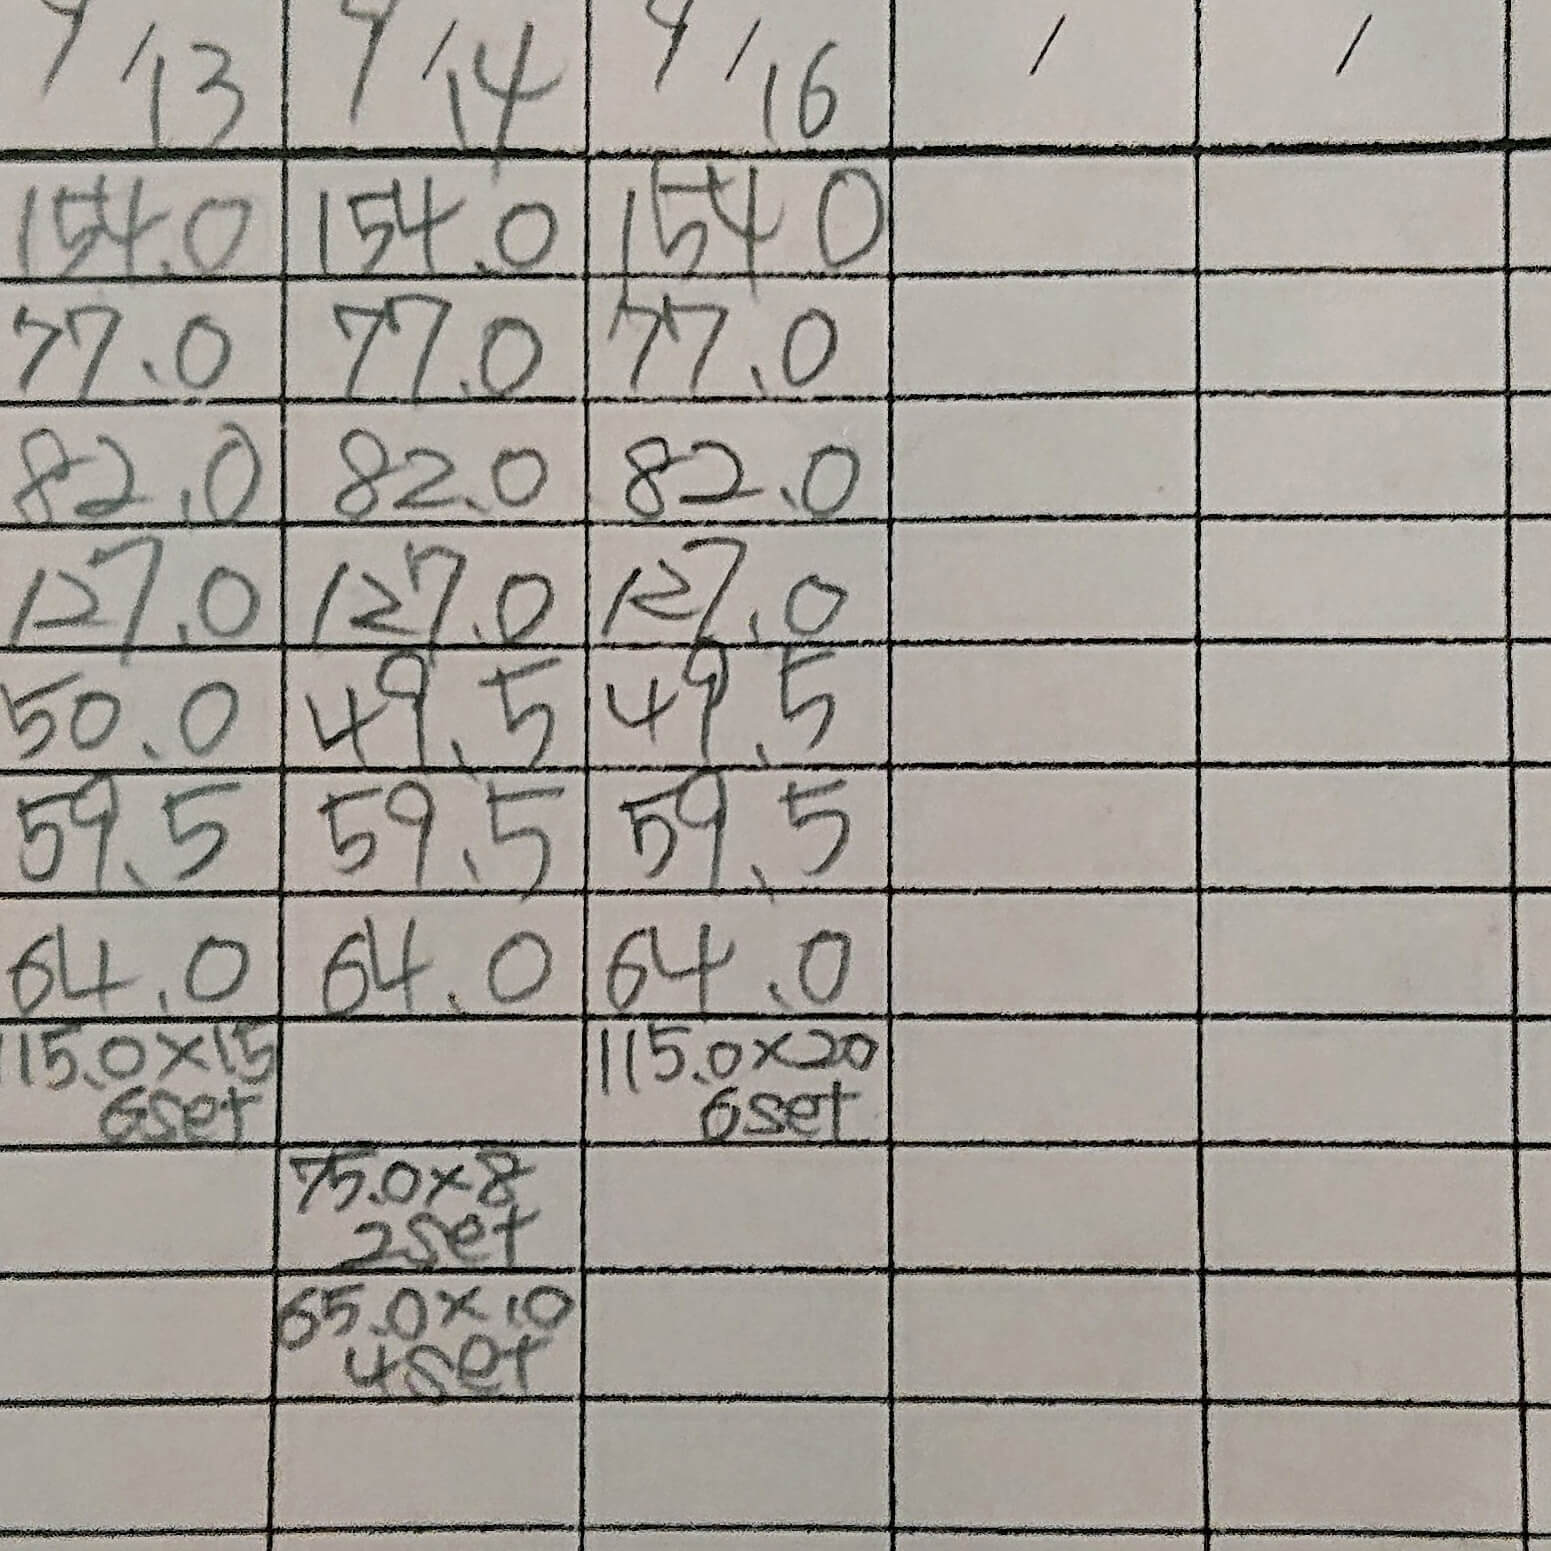 /13 /14 /16 / /
154.0 154.0 154.0
77.0 77.0 77.0
82.0 82.0 82.0
127.0 127.0 127.0
50.0 49.5 49.5
59.5 59.5 59.5
64.0 64.0 64.0
115.0×15 115.0×20
6set 6set
75.0×8
2set
65.0×10
4set